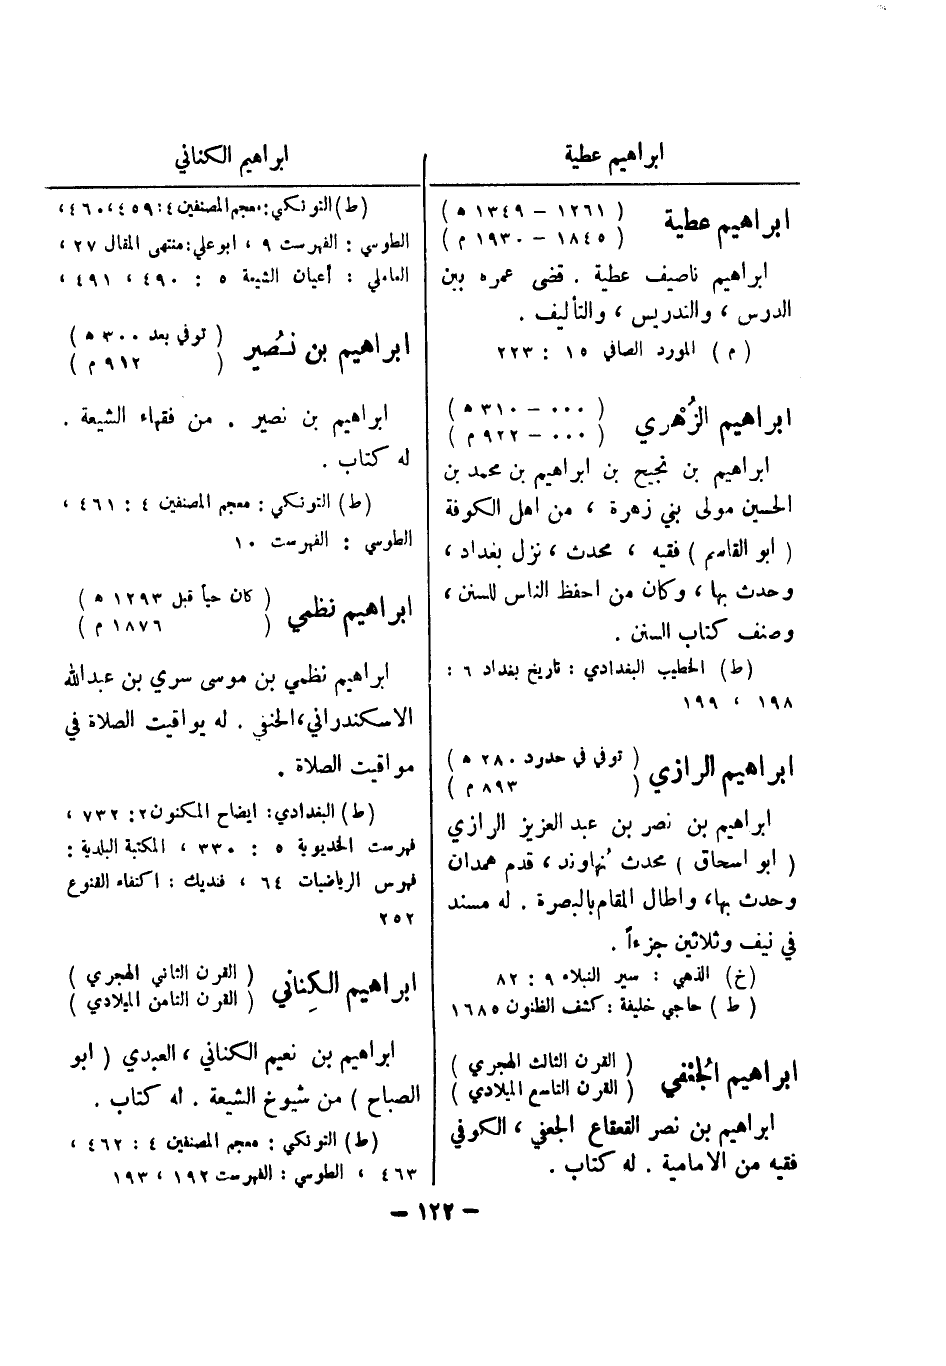 ابراهيم عطية
ابراهيم عطية
( ١٢٦١ – ١٣٤٩ ه )
( ١٨٤٥ – ١٩٣٠ م )
ابراهيم ناصيف عطية . قضى عمره بين
الدرس ، والتدريس ، والتأليف .
( م ) المورد الصافي ١٥ : ٢٢٣
ابراهيم الزُهْري
( ٠٠٠ – ٣١٠ ه )
( ٠٠٠ – ٩٢٢ م )
ابراهيم بن نجيح بن ابراهيم بن محمد بن
الحسين مولى بني زهرة ، من اهل الكوفة
( ابو القاسم ) فقيه ، محدث ، نزل بغداد ،
وحدث بها ، وكان من احفظ الناس للسنن ،
وصنف كتاب السنن .
(ط) الخطيب البغدادي : تاريخ بغداد ٦ :
١٩٨ ، ١٩٩
ابراهيم الرازي
( توفي في حدود ٢٨٠ ه )
( ٨٩٣ م )
ابراهيم بن نصر بن عبد العزيز الرازي
( ابو اسحاق ) محدث نُهاوند ، قدم همدان
وحدث بها، واطال المقام بالبصرة . له مسند
في نيف وثلاثين جزءاً .
(خ) الذهي : سير النبلاء ٩ : ٨٢
( ط ) حاجي خليفة : كشف الظنون ١٦٨٥
ابراهيم الجُعْفي
( القرن الثالث الهجري )
( القرن التاسع الميلادي )
ابراهيم بن نصر القعقاع الجعفي ، الكوفي
فقيه من الامامية . له كتاب .
ابراهيم الكناني
(ط) التونكي: معجم المصنفين ٤: ٤٥٩، ٤٦٠،
الطوسي : الفهرست ٩ ، ابوعلي: منتهى المقال ٢٧ ،
العاملي : أعيان الشيعة ٥ : ٤٩٠ ، ٤٩١ ،
ابراهيم بن نُصير
( توفي بعد ٣٠٠ ه )
( ٩١٢ م )
ابراهيم بن نصير . من فقهاء الشيعة .
له كتاب .
(ط) التونكي : معجم المصنفين ٤ : ٤٦١ ،
الطوسي : الفهرست ١٠
ابراهيم نظمي
( كان حياً قبل ١٢٩٣ ه )
( ١٨٧٦ م )
ابراهيم نظمي بن موسى سري بن عبدالله
الاسكندراني، الحنفي . له يواقيت الصلاة في
مواقيت الصلاة .
(ط) البغدادي: ايضاح المكنون ٢: ٧٣٢ ،
فهرست الخديوية ٥ : ٣٣٠ ، المكتبة البلدية :
فهرس الرياضيات ٦٤ ، فنديك : اكتفاء القنوع
٢٥٢
ابراهيم الكِناني
( القرن الثاني الهجري )
( القرن الثامن الميلادي )
ابراهيم بن نعيم الكناني ، العبدي ( ابو
الصباح ) من شيوخ الشيعة . له كتاب .
(ط) التونكي : معجم المصنفين ٤ : ٤٦٢ ،
٤٦٣ ، الطوسي : الفهرست ١٩٢ ، ١٩٣
– ١٢٢ –